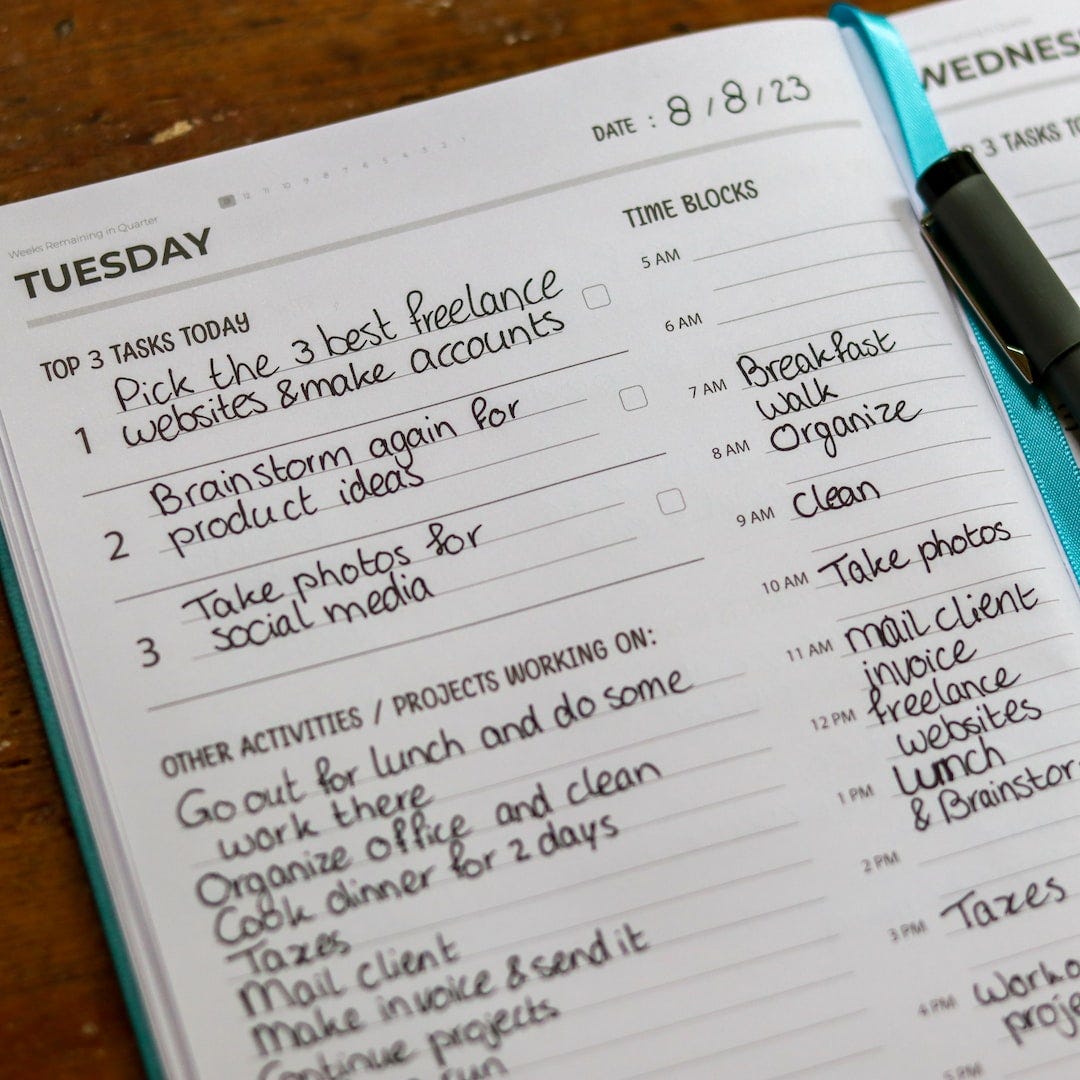 DATE : 8 / 8 / 23
Weeks Remaining in Quarter
13 12 11 10 9 8 7 6 5 4 3 2 1
TUESDAY
TOP 3 TASKS TODAY
1 Pick the 3 best freelance
websites & make accounts
2 Brainstorm again for
product ideas
3 Take photos for
social media
OTHER ACTIVITIES / PROJECTS WORKING ON:
Go out for lunch and do some
work there
Organize office and clean
Cook dinner for 2 days
Taxes
Mail client
Make invoice & send it
Continue projects
run
TIME BLOCKS
5 AM
6 AM
7 AM Breakfast
walk
8 AM Organize
9 AM Clean
10 AM Take photos
11 AM mail client
invoice
12 PM freelance
websites
1 PM lunch
& Brainstor
2 PM
3 PM Taxes
4 PM Work o
proje
5 PM
WEDNES
3 TASKS TO